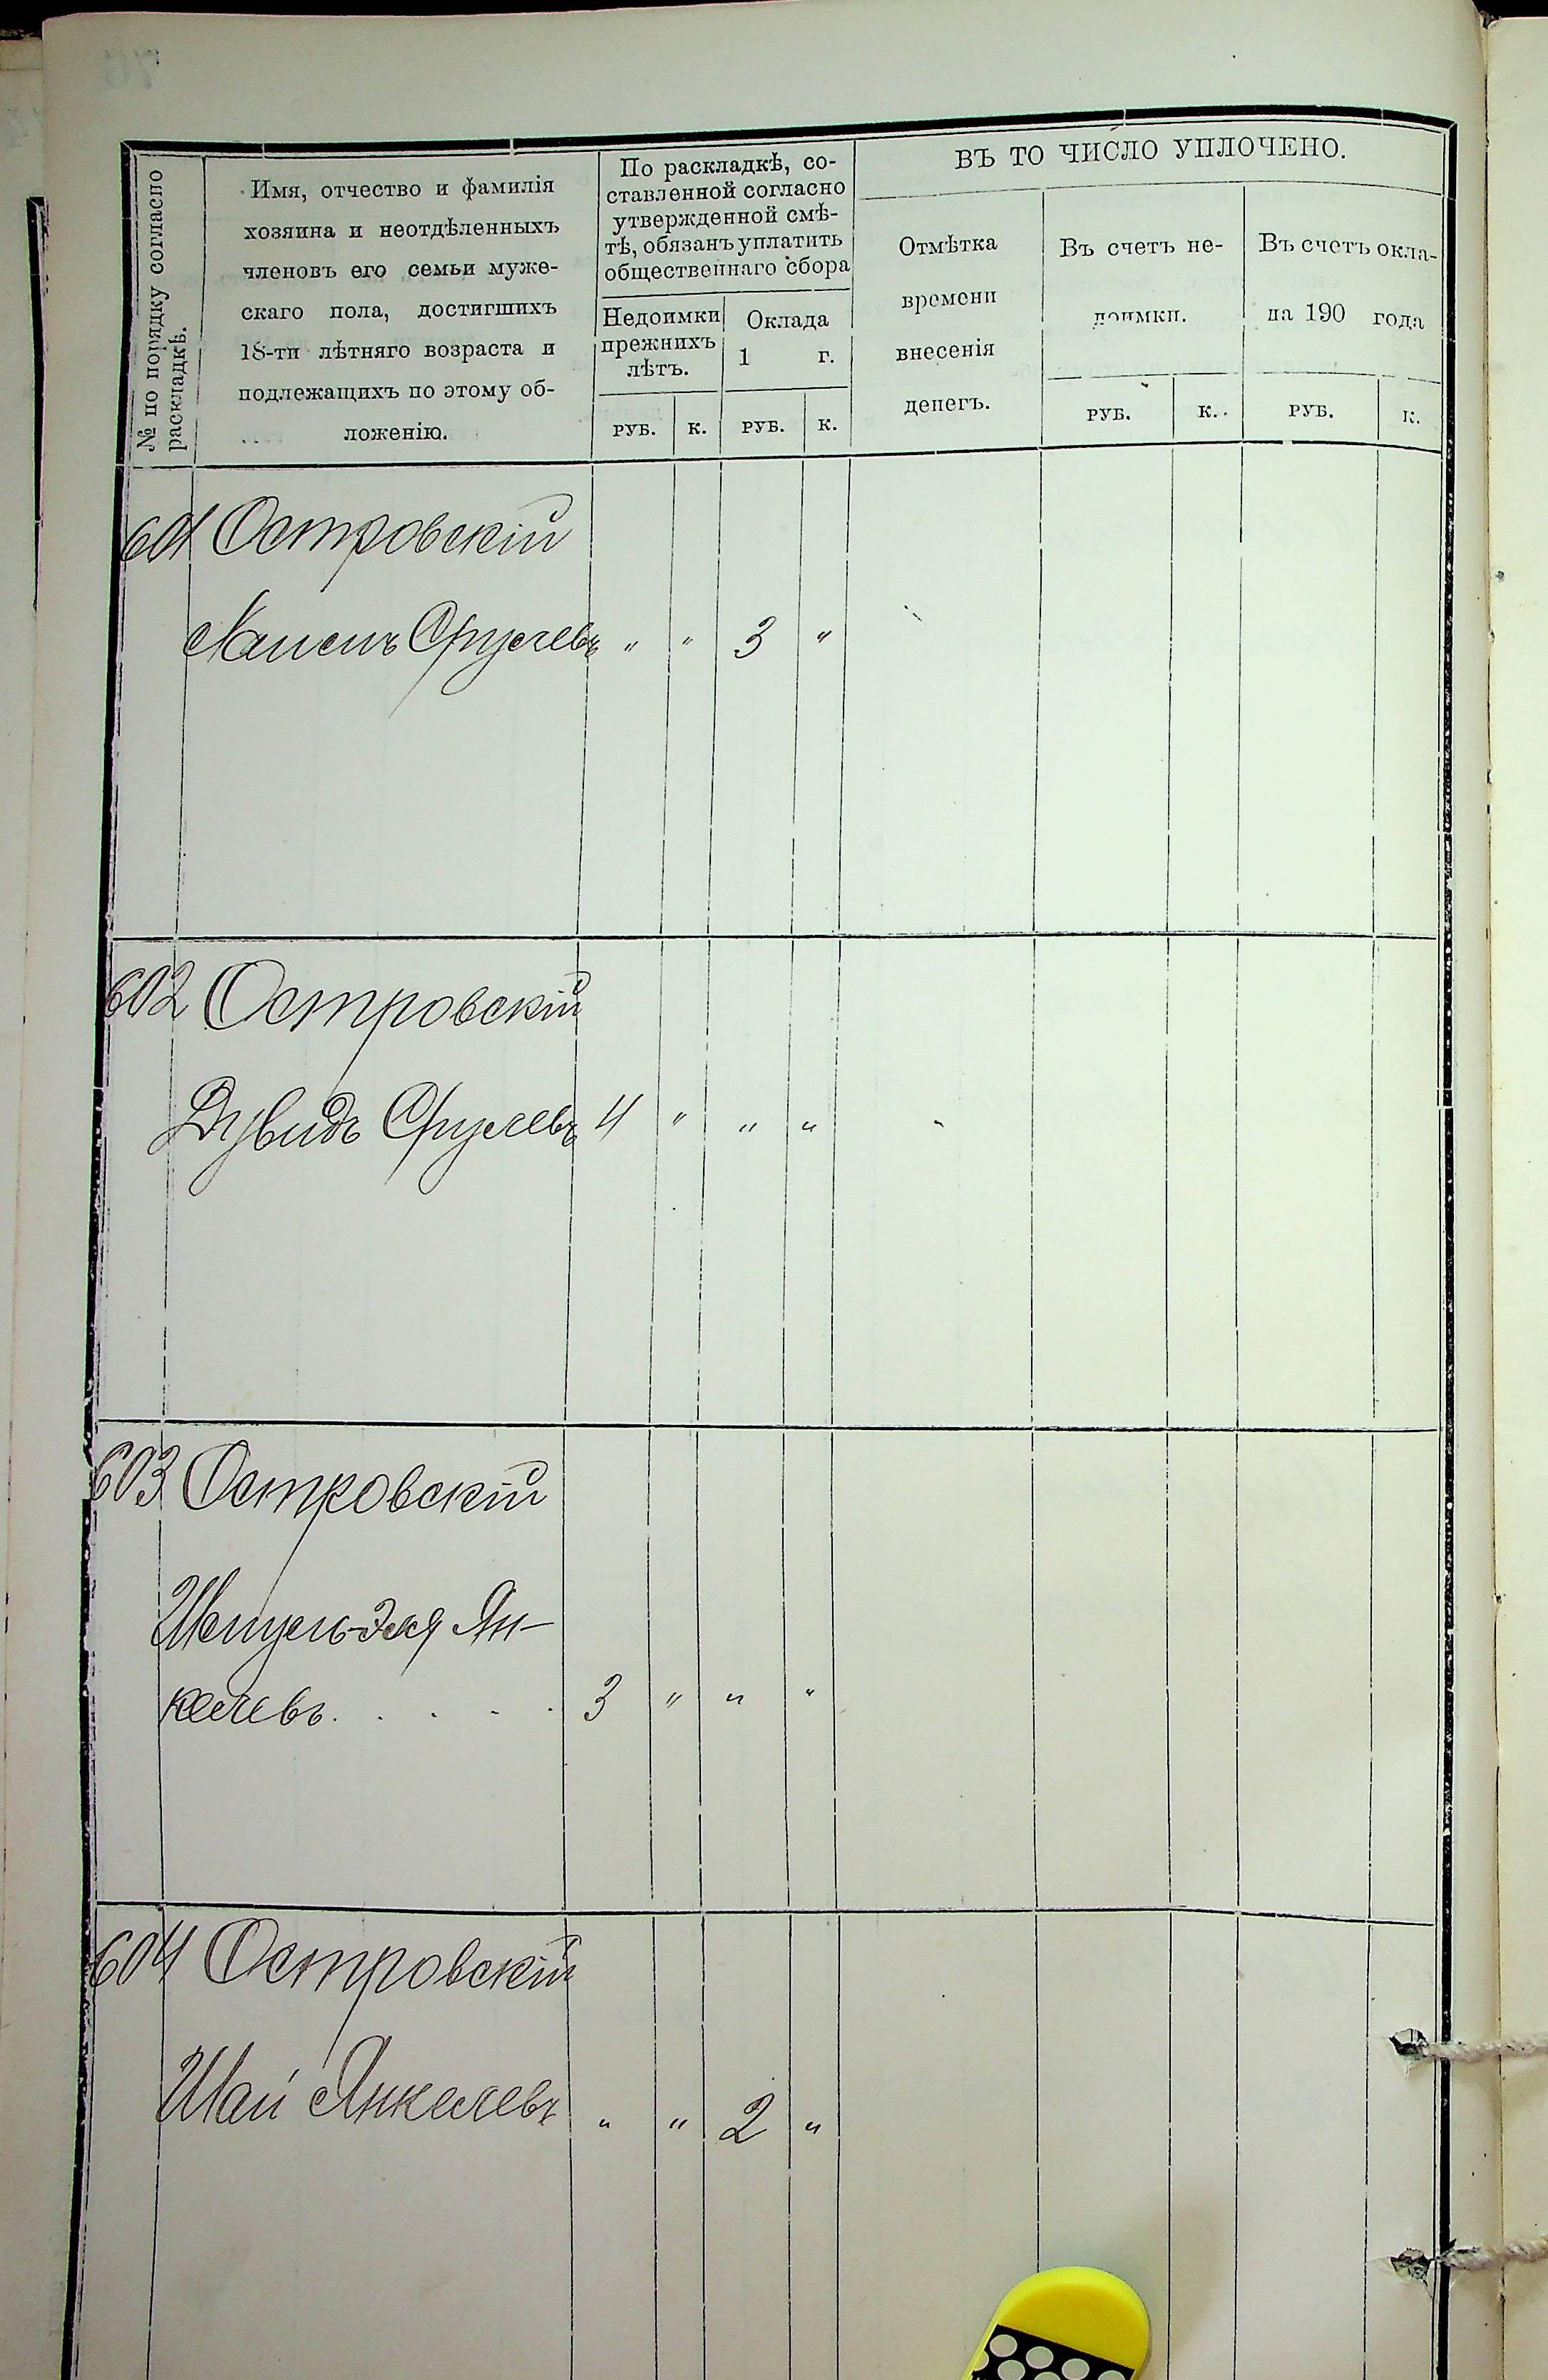 № по порядку согласно
раскладкѣ.
Имя, отчество и фамилія
хозяина и неотдѣленныхъ
членовъ его семьи муже-
скаго пола, достигшихъ
18-ти лѣтняго возраста и
подлежащихъ по этому об-
ложенію.
По раскладкѣ, со-
ставленной согласно
утвержденной смѣ-
тѣ, обязанъ уплатить
общественнаго сбора
Недоимки
прежнихъ
лѣтъ.
Оклада
1 г.
РУБ. К. РУБ. К.
ВЪ ТО ЧИСЛО УПЛОЧЕНО.
Отмѣтка
времени
внесенія
денегъ.
Въ счетъ не-
доимки.
РУБ. К.
Въ счетъ окла-
на 190 года
РУБ. К.
601 Островскій
Срулевъ " " 3 "
602 Островскій
Дувидъ Срулевъ 4 " " "
603 Островскій
Шмуель-Эля Ян-
келевъ. . . . . 3 " " "
604 Островскій
Шай Янкелевъ " " 2 "